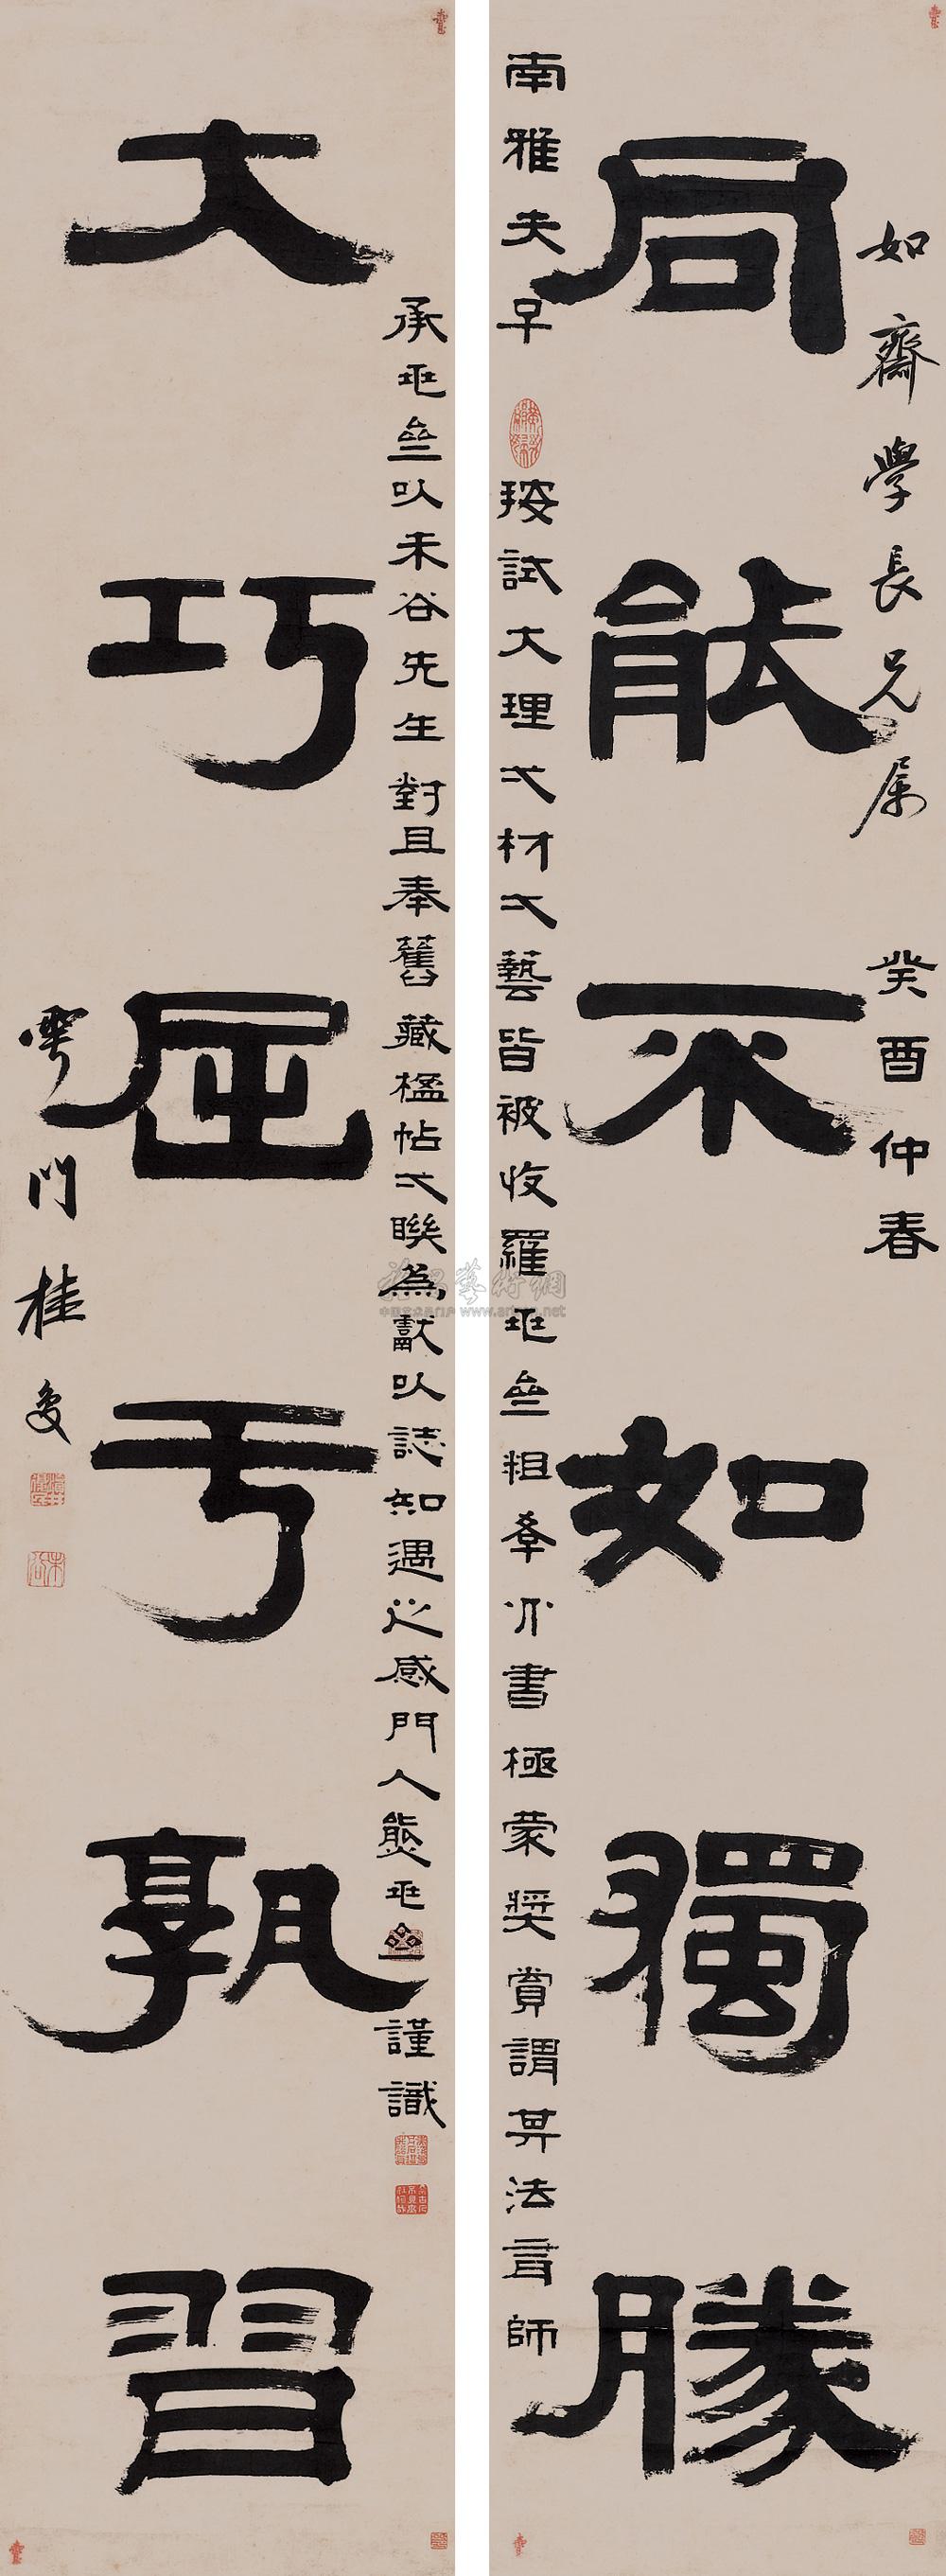 如齋學長兄屬
癸酉仲春
同能不如獨勝
南雅夫子
按試大理弌材弌藝皆被收羅 粗學八書極蒙獎賞謂其法有師
承 以未谷先生對且奉舊藏楹帖弌聯為獻以誌知遇之感門人熊 謹識
大巧屈于孰習
雩門桂馥